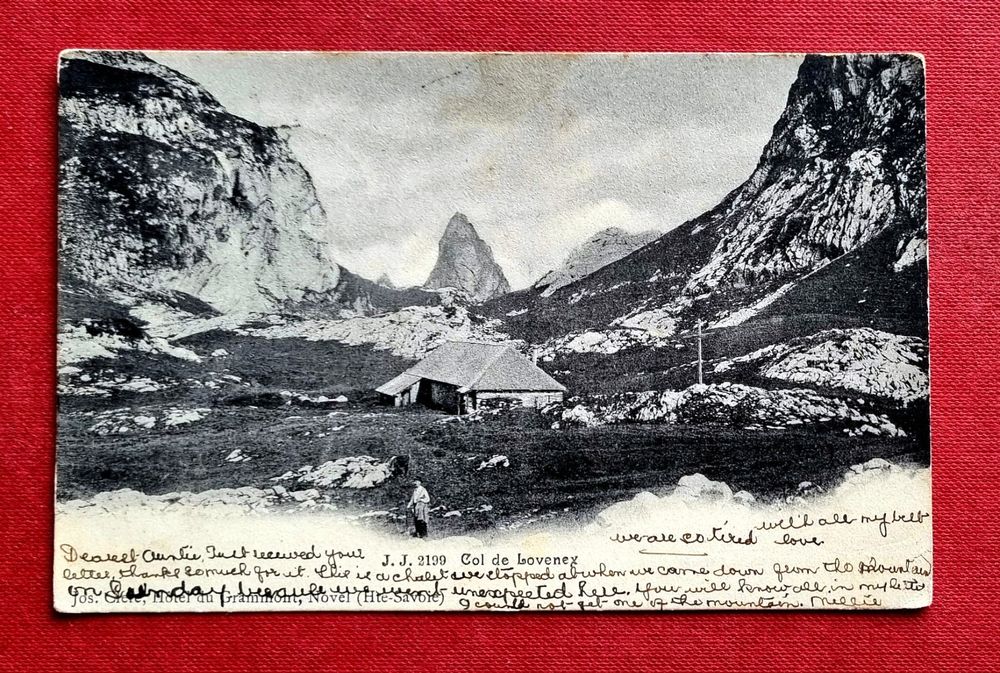 we are so tired
with all my best
love.
Dearest Auntie, Just received your
J. J. 2199 Col de Lovenex
letter, thanks so much for it. This is a chalet we stopped at when we came down from the mountain
on Saturday because we went unexpected here. You will know all, in my letter
Jos. Hôtel du Grammont, Novel (Hte-Savoie)
I could not get one of the mountain. Millie